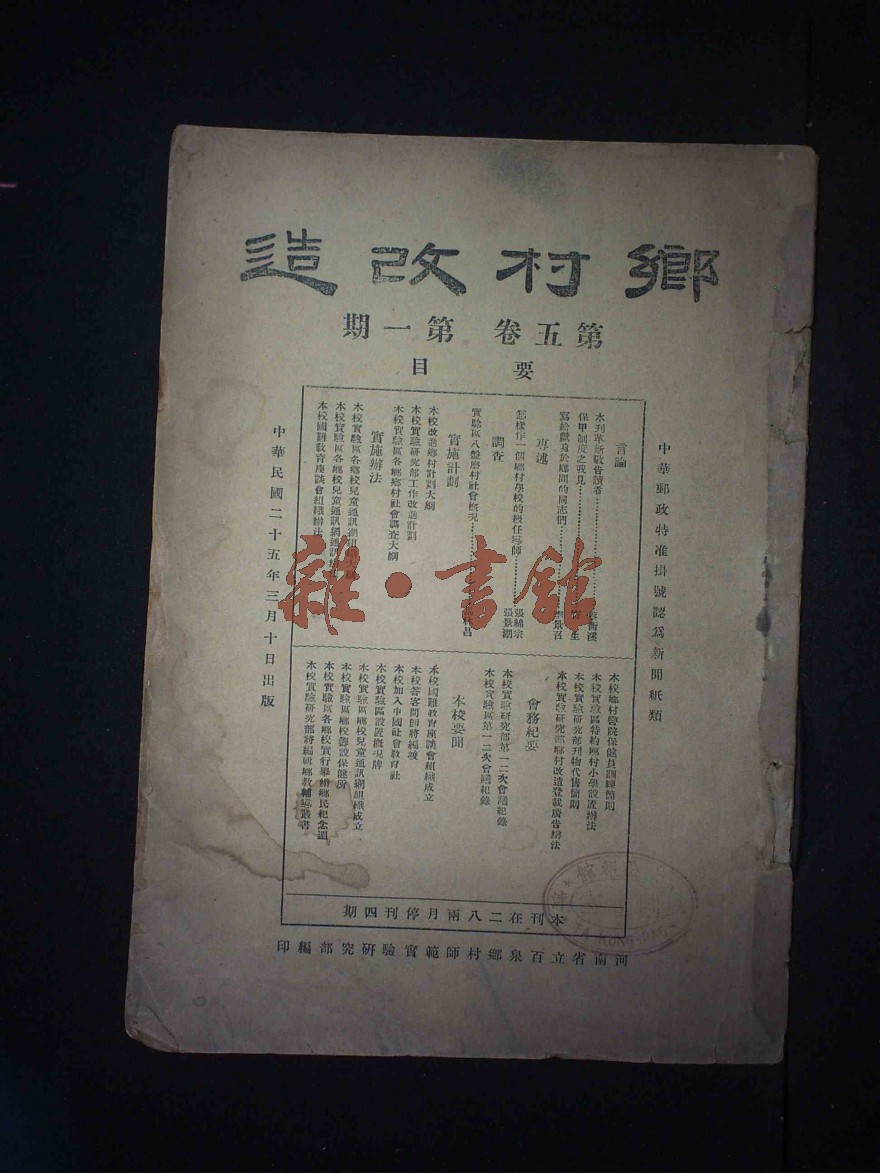 鄉村改造
第五卷 第一期
要目
中華郵政特准掛號認爲新聞紙類
言論
本刊革新敬告讀者
保甲制度之我見
寫給獻身於鄉間的同志們
專述
怎樣作一個鄉村學校的級任導師
張綿宗
張景湖
調查
實驗區八盤磨村社會概況
實施計劃
本校改進鄉村計劃大綱
本校實驗研究部工作改進計劃
本校實驗區各鄉鄉村社會調查大綱
實施辦法
本校實驗區各鄉校兒童通訊網組織
本校實驗區各鄉校兒童通訊網通訊
本校國難教育座談會組織辦法
本校鄉村醫院保健員訓練簡則
本校實驗區特約鄉村小學設置辦法
本校實驗研究部刊物代售簡則
本校實驗研究部鄉村改造登載廣告辦法
會務紀要
本校實驗研究部第一二次會議紀錄
本校實驗區第一二次會議紀錄
本校要聞
本校國難教育座談會組織成立
本校答客問即將編竣
本校加入中國社會教育社
本校實驗區設置概況牌
本校實驗區鄉校兒童通訊網組織成立
本校實驗區鄉校籌設保健所
本校實驗區各鄉校實行舉辦鄉民紀念週
本校實驗研究部將編輯鄉教輔導叢書
本刊在二八兩月停刊四期
中華民國二十五年三月十日出版
河南省立百泉鄉村師範實驗研究部編印
雜·書館